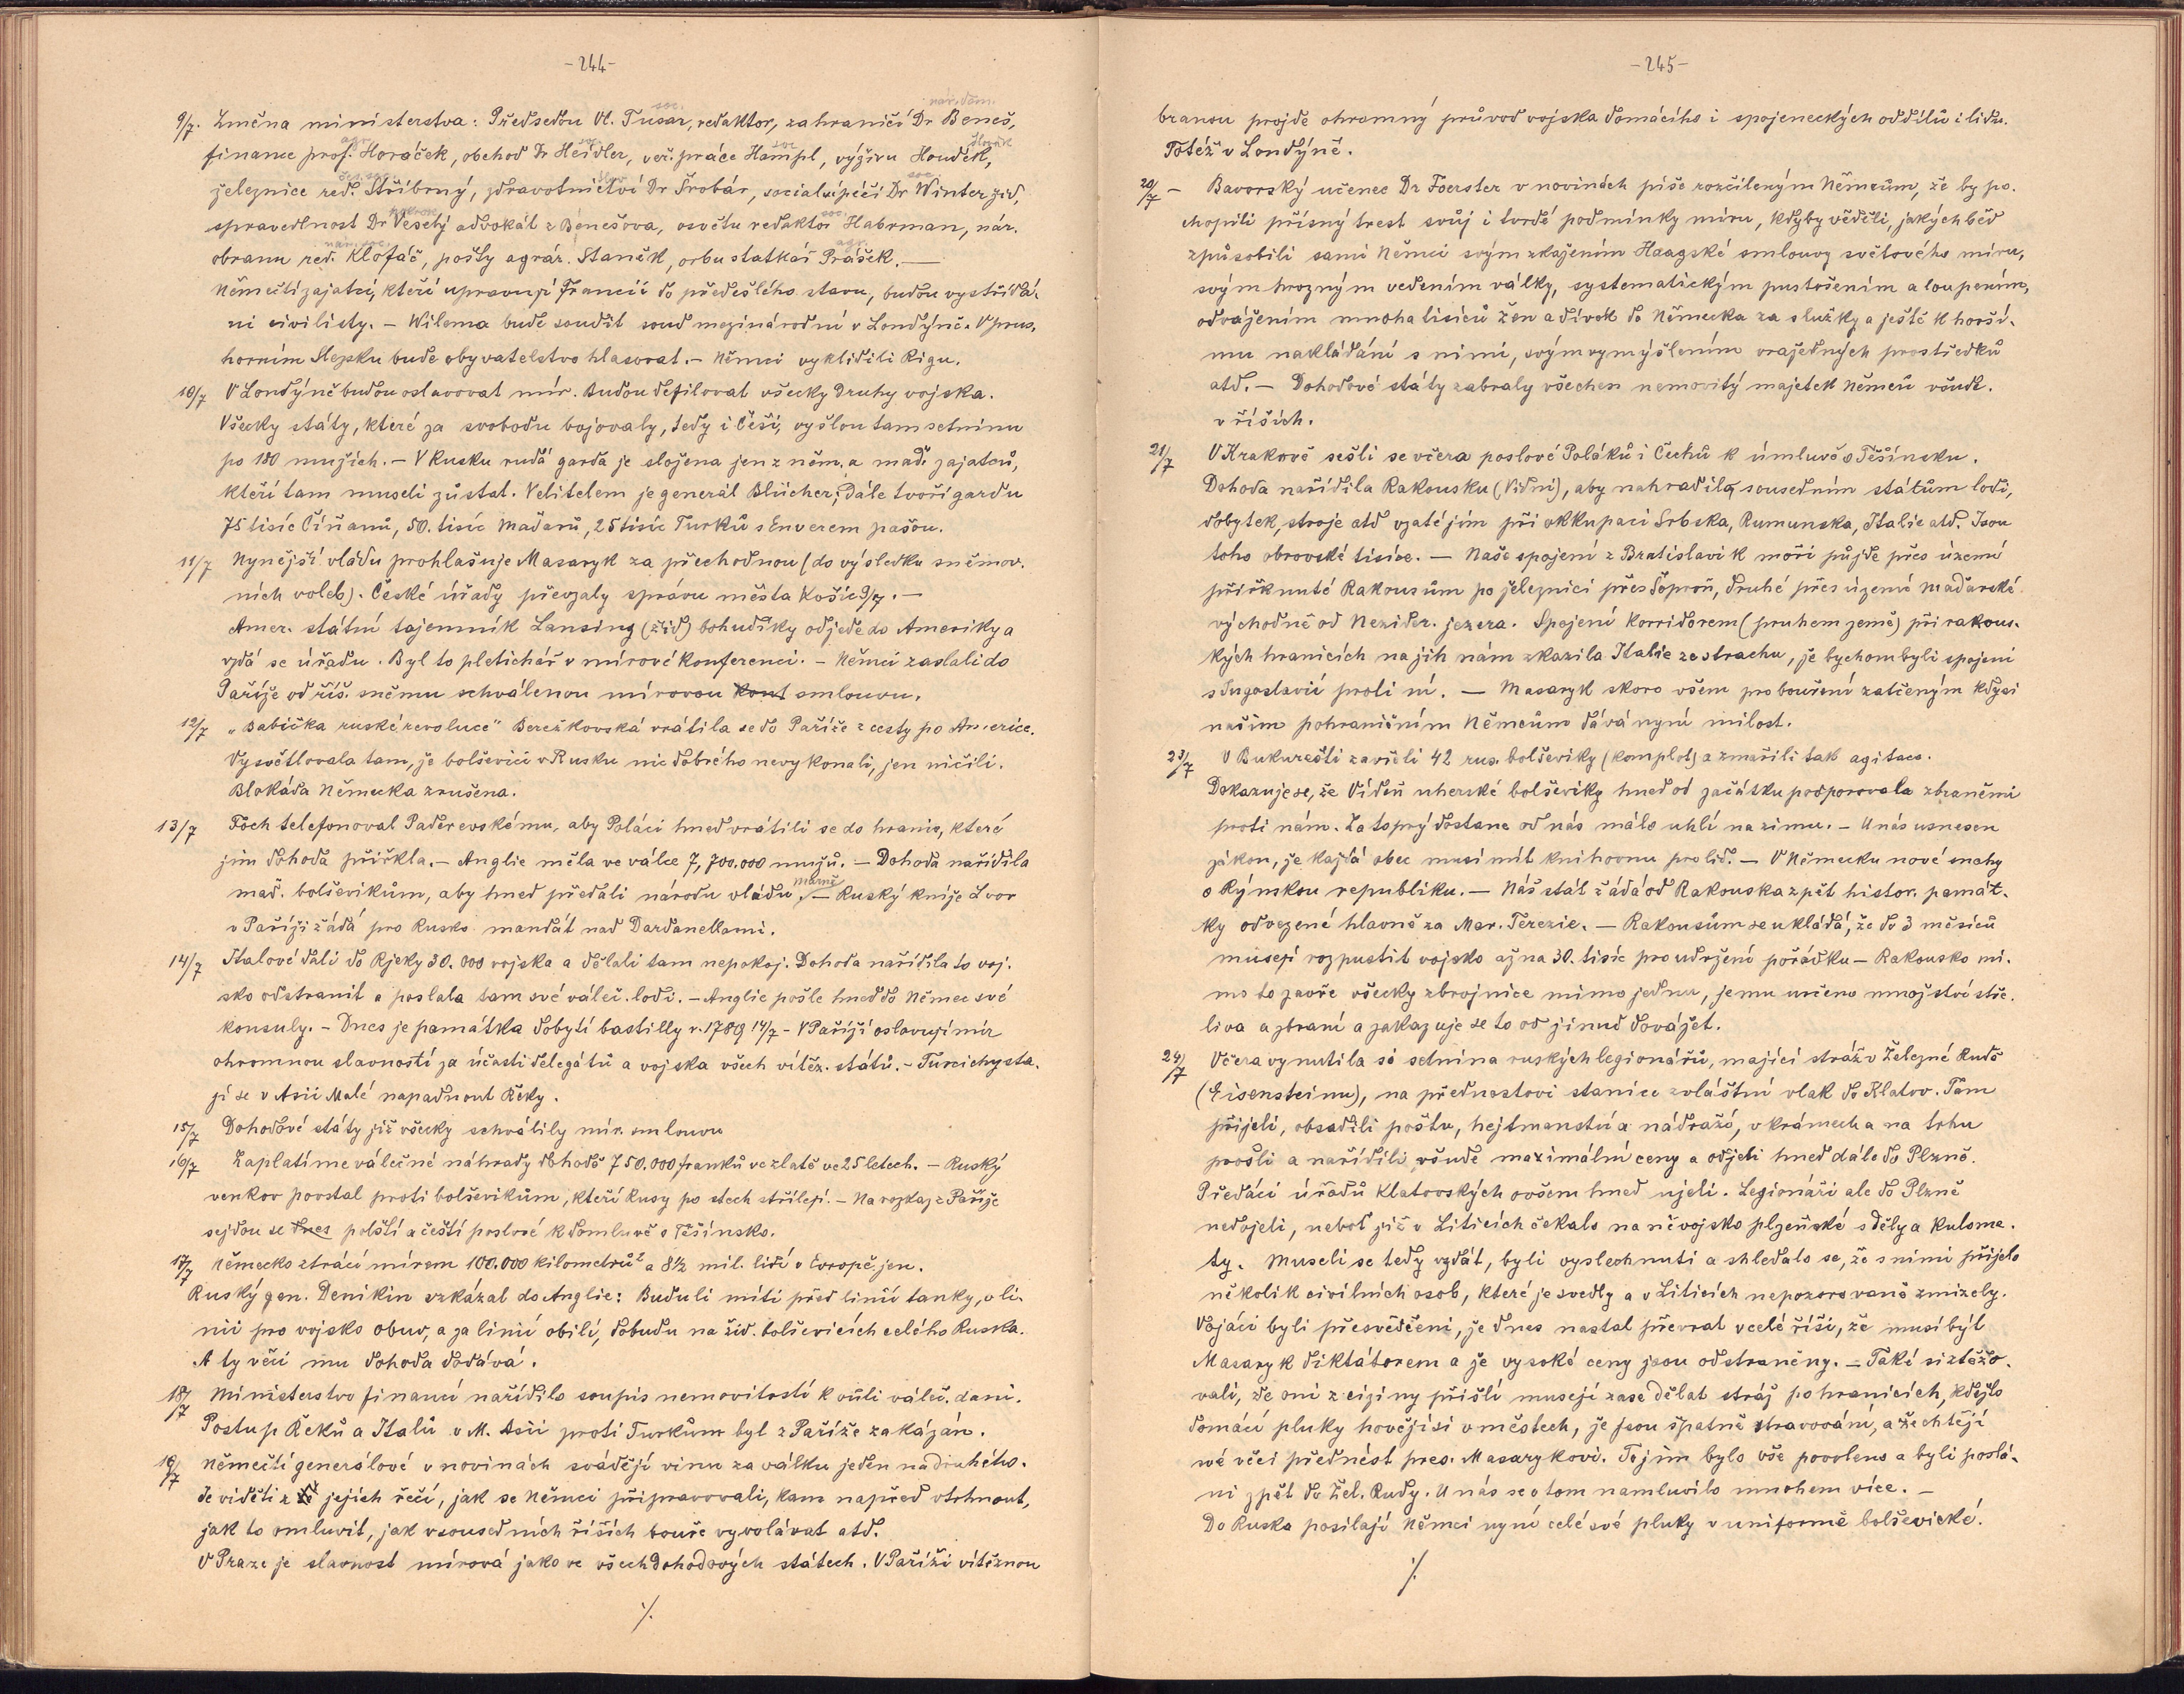 -244-
9/7. Změna ministerstva: Předsedou Vl. Tusar, redaktor, zahraničí Dr Beneš,
finance prof. Horáček, obchod Dr Heidler, veř. práce Hampl, výživu Houdek,
železnice red. Stříbrný, zdravotnictví Dr Šrobár, sociální péči Dr Winter žid,
spravedlnost Dr Veselý advokát z Benešova, osvětu redaktor Habrman, nár.
obranu red. Klofáč, pošty agrár. Staněk, orbu statkář Prášek. —
Němečtí zajatci, kteří upravují Francii do předešlého stavu, budou vystřídá-
ni civilisty. - Wilema bude soudit soud mezinárodní v Londýně. V prus.
horním Slezsku bude obyvatelstvo hlasovat. - Němci vyklidili Rigu.
10/7 V Londýně budou oslavovat mír. Budou defilovat všecky druhy vojska.
Všecky státy, které za svobodu bojovaly, tedy i Češi, vyšlou tam setninu
po 180 mužích. - V Rusku rudá garda je složena jen z něm. a maď. zajatců,
kteří tam museli zůstat. Velitelem je generál Blücher; dále tvoří gardu
75 tisíc Číňanů, 50. tisíc Maďarů, 25 tisíc Turků s Enverem pašou.
11/7 Nynější vládu prohlašuje Masaryk za přechodnou (do výsledku sněmov.
ních voleb). České úřady převzaly správu města Košic 9/7. —
Amer. státní tajemník Lansing (žid) bohudíky odjede do Ameriky a
vzdá se úřadu. Byl to pletichář v mírové konferenci. - Němci zaslali do
Paříže od říš. sněmu schválenou mírovou kont smlouvu.
12/7 „Babička ruské revoluce" Bereškovská vrátila se do Paříže z cesty po Americe.
Vysvětlovala tam, že bolševici v Rusku nic dobrého nevykonali, jen ničili.
Blokáda Německa zrušena.
13/7 Foch telefonoval Paderevskému, aby Poláci hned vrátili se do hranic, které
jim dohoda přiřkla. - Anglie měla ve válce 7,700.000 mužů. - Dohoda nařídila
maď. bolševikům, aby hned předali národu vládu, marně - Ruský kníže Lvov
v Paříži žádá pro Rusko mandát nad Dardanellami.
14/7 Italové dali do Rjeky 30.000 vojska a dělali tam nepokoj. Dohoda nařídila to voj.
sko odstranit a poslala tam své váleč. lodi. - Anglie pošle hned do Němec své
konsuly. - Dnes je památka dobytí bastilly r. 1789 14/7 - V Paříži oslavují mír
ohromnou slavností za účasti delegátů a vojska všech vítěz. států. - Turci chysta.
jí se v Asii Malé napadnout Řeky.
15/7 Dohodové státy již všecky schválily mír. smlouvu
16/7 Zaplatíme válečné náhrady dohodě 750.000 franků ve zlatě ve 25 letech. - Ruský
venkov povstal proti bolševikům, kteří Rusy po stech střílejí. - Na rozkaz z Paříže
sejdou se dnes polští a čeští poslové k domluvě o Těšínsko.
17/7 Německo ztrácí mírem 100.000 kilometrů² a 8½ mil. lidí v Evropě jen.
Ruský gen. Denikin vzkázal do Anglie: Budu li míti před linií tanky, v li-
nii pro vojsko obuv, a za linií obilí, dobudu na žid. bolševicích celého Ruska.
A ty věci mu dohoda dodává.
18/7 Ministerstvo financí nařídilo soupis nemovitostí k vůli váleč. dani.
Postup Řeků a Italů v M. Asii proti Turkům byl z Paříže zakázán.
19/7 Němečtí generálové v novinách svádějí vinu za válku jeden na druhého.
Je viděti z jejich řečí, jak se Němci připravovali, kam napřed vtrhnout,
jak to omluvit, jak v sousedních říších bouře vyvolávat atd.
V Praze je slavnost mírová jako ve všech Dohodových státech. V Paříži vítěznou
·/.
-245-
branou projde ohromný průvod vojska domácího i spojeneckých oddílů i lidu.
Totéž v Londýně.
20/7 - Bavorský učenec Dr Foerster v novinách píše rozčileným Němcům, že by po.
chopili přísný trest svůj i tvrdé podmínky míru, kdyby věděli, jakých běd
způsobili sami Němci svým zkažením Haagské smlouvy světového míru,
svým hrozným vedením války, systematickým pustošením a loupením,
odvážením mnoha tisíců žen a dívek do Německa za služky a ještě k horší-
mu nakládání s nimi, svým vymýšlením vražedných prostředků
atd. - Dohodové státy zabraly všechen nemovitý majetek Němců všude.
v říších.
21/7 V Krakově sešli se včera poslové Poláků i Čechů k úmluvě o Těšínsku.
Dohoda nařídila Rakousku (Vídni), aby nahradila sousedním státům lodi,
dobytek, stroje atd vzaté jim při okkupaci Srbska, Rumunska, Italie atd. Jsou
toho obrovské tisíce. - Naše spojení z Bratislavi k moři půjde přes území
přiřknuté Rakousům po železnici přes Šoproň, druhé přes území maďarské
východně od Nezider. jezera. Spojení korridorem (pruhem země) při rakous-
kých hranicích na jih nám zkazila Italie ze strachu, že bychom byli spojeni
s Jugoslavií proti ní. - Masaryk skoro všem pro bouření zatčeným kdysi
našim pohraničním Němcům dává nyní milost.
23/7 V Bukurešti zavřeli 42 rus. bolševiky (komplot) a zmařili tak agitaci.
Dokazuje se, že Vídeň uherské bolševiky hned od začátku podporovala zbraněmi
proti nám. Za to prý dostane od nás málo uhlí na zimu. - U nás usnesen
zákon, že každá obec musí mít knihovnu pro lid. - V Německu nové snahy
o Rýnskou republiku. - Náš stát žádá od Rakouska zpět histor. památ-
ky odvezené hlavně za Mar. Terezie. - Rakousům se ukládá, že do 3 měsíců
musejí rozpustit vojsko až na 30. tisíc pro udržení pořádku - Rakousko mi.
mo to zavře všecky zbrojnice mimo jednu, jemu určeno množství stře.
liva a zbraní a zakazuje se to od jinud dovážet.
24/7 Včera vynutila si setnina ruských legionářů, mající stráž v Železné Rudě
(Eisensteinu), na přednostovi stanice zvláštní vlak do Klatov. Tam
přijeli, obsadili poštu, hejtmanství a nádraží, v krámech a na trhu
prošli a nařídili všude maximální ceny a odjeli hned dále do Plzně.
Předáci úřadů Klatovských ovšem hned ujeli. Legionáři ale do Plzně
nedojeli, neboť již v Liticích čekalo na ně vojsko plzeňské s děly a kulome.
ty. Museli se tedy vzdát, byli vyslechnuti a shledalo se, že s nimi přijelo
několik civilních osob, které je svedly a v Liticích nepozorovaně zmizely.
Vojáci byli přesvědčeni, že dnes nastal převrat v celé říši, že musí být
Masaryk diktátorem a že vysoké ceny jsou odstraněny. - Také si ztěžo.
vali, že oni z ciziny přišlí musejí zase dělat stráž po hranicích, kdežto
domácí pluky hovějí si v městech, že jsou špatně stravováni, a že chtějí
své věci přednést pres. Masarykovi. To jim bylo vše povoleno a byli poslá-
ni zpět do Žel. Rudy. U nás se o tom namluvilo mnohem více. -
Do Ruska posílají Němci nyní celé své pluky v uniformě bolševické.
·/.